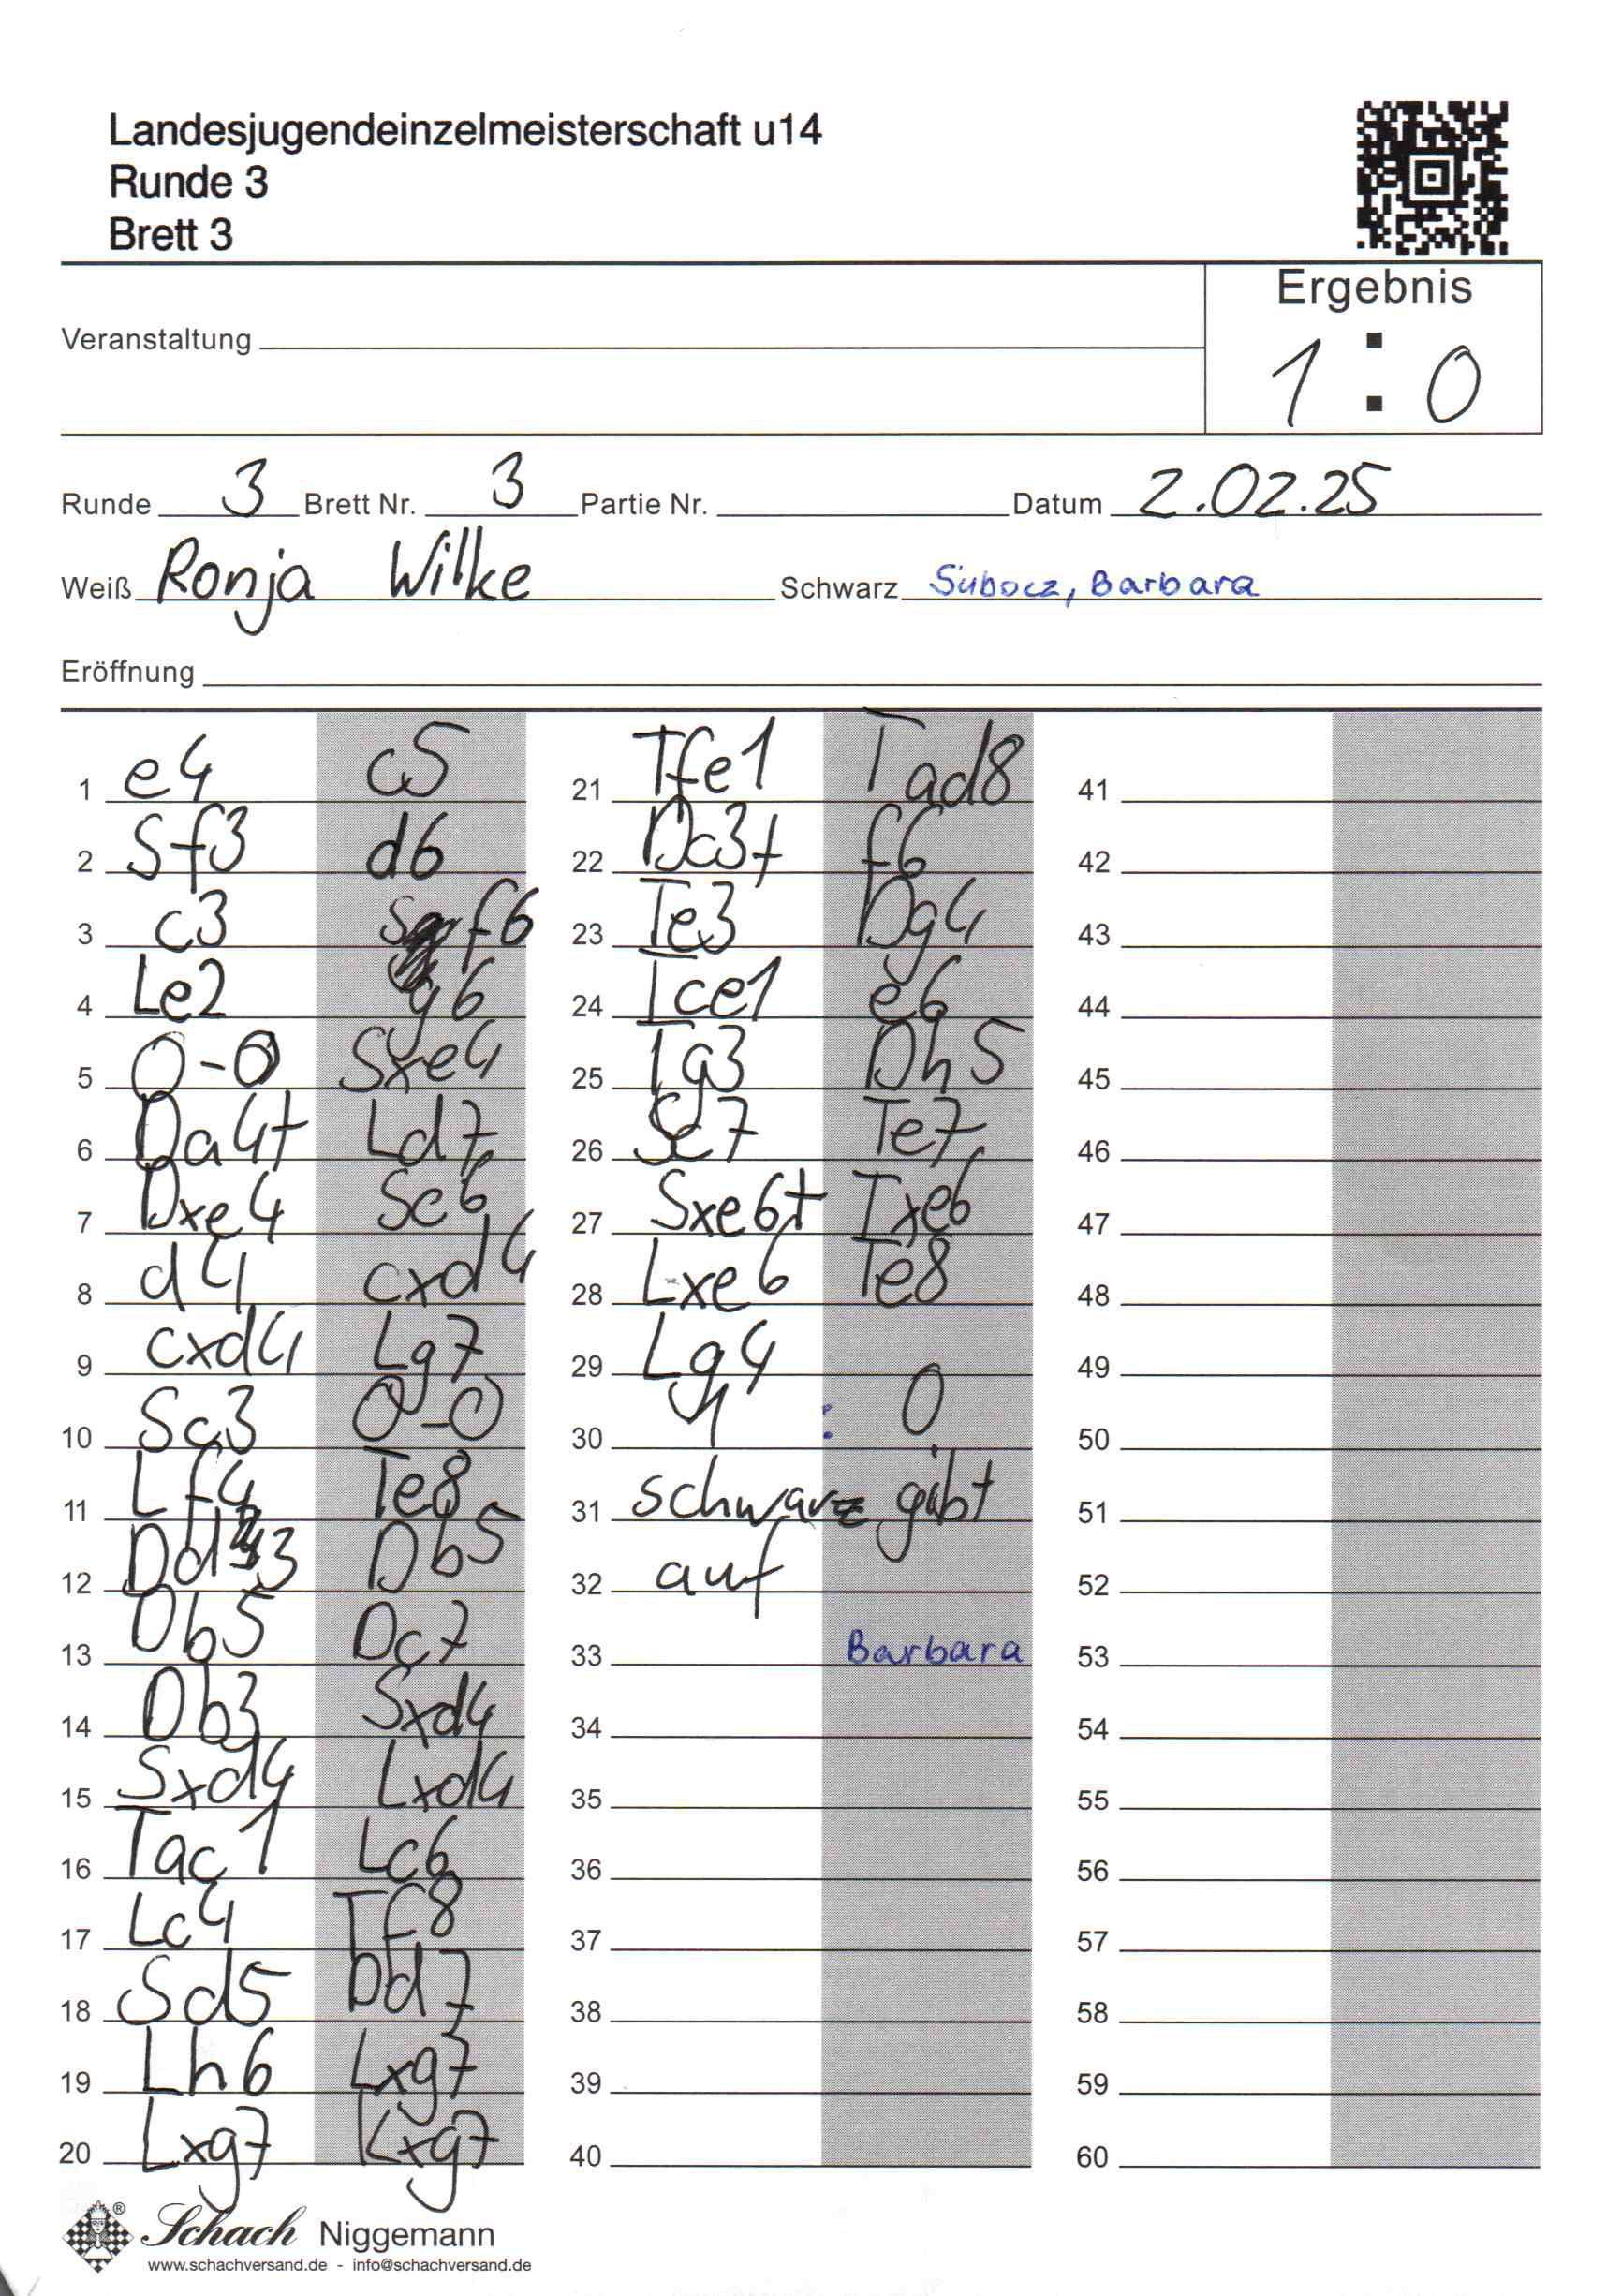 Landesjugendeinzelmeisterschaft u14
Runde 3
Brett 3
Ergebnis
1 : 0
Veranstaltung
Runde 3 Brett Nr. 3 Partie Nr. Datum 2.02.25
Weiß Ronja Wilke Schwarz Subocz, Barbara
Eröffnung
1 e4 c5
2 Sf3 d6
3 c3 Sf6
4 Le2 g6
5 0-0 Sxe4
6 Da4+ Ld7
7 Dxe4 Sc6
8 d4 cxd4
9 cxd4 Lg7
10 Sc3 0-0
11 Lf4 Te8
12 Dd3 Db5
13 Db5 Dc7
14 Db3 Sxd4
15 Sxd4 Lxd4
16 Tac1 Lc6
17 Lc4 Tf8
18 Sd5 Dd7
19 Lh6 Lxg7
20 Lxg7 Kxg7
21 Tfe1 Tad8
22 Dc3+ f6
23 Te3 Dg4
24 Tce1 e6
25 Tg3 Dh5
26 Sc7 Te7
27 Sxe6+ Txe6
28 Lxe6 Te8
29 Lg4
30 1 : 0
31 schwarz gibt
32 auf
33 Barbara
34
35
36
37
38
39
40
41
42
43
44
45
46
47
48
49
50
51
52
53
54
55
56
57
58
59
60
Schach Niggemann
www.schachversand.de - info@schachversand.de